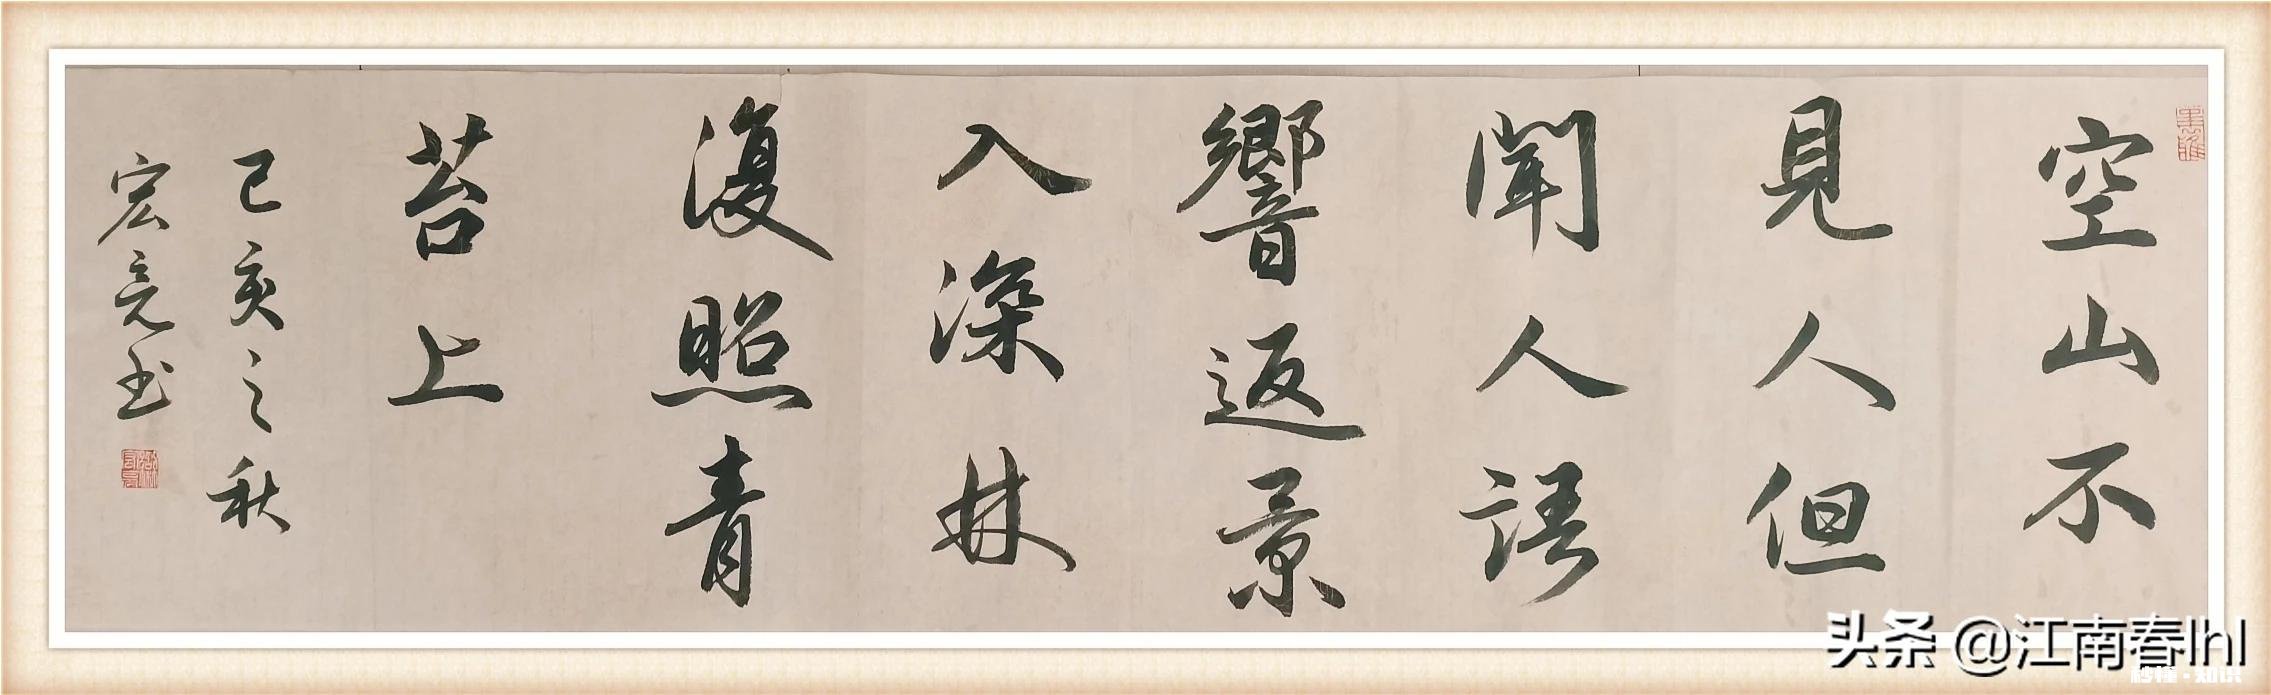 空山不
見人但
聞人語
響返景
入深林
復照青
苔上
己亥之秋
宏亮书
头条 @江南春lhl
秒懂·知识